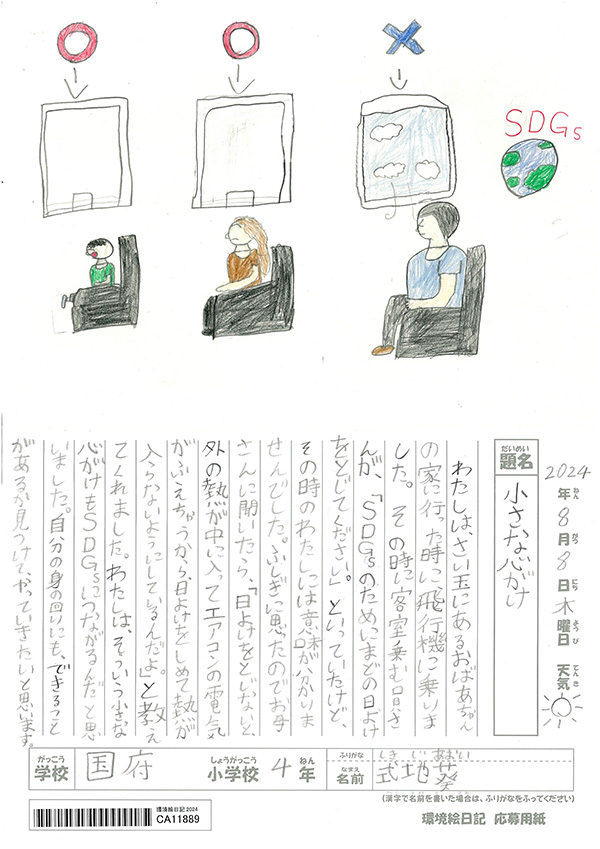 SDGs
2024年8月8日木曜日 天気
ねん がつ にち ようび てんき
だいめい
題名
小さな心がけ
わたしは、さい玉にあるおばあちゃん
の家に行った時に飛行機に乗りま
した。その時に客室乗む員さ
んが、「SDGsのためにまどの日よけ
をとじてください。」といっていたけど、
その時のわたしには意味が分かりま
せんでした。ふしぎに思ったのでお母
さんに聞いたら、「日よけをとじないと
外の熱が中に入ってエアコンの電気
がふえちゃうから、日よけをしめて熱が
入らないようにしているんだよ。」と教え
てくれました。わたしは、そういう小さな
心がけもSDGsにつながるんだと思
いました。自分の身の回りにも、できること
があるか見つけて、やっていきたいと思います。
がっこう しょうがっこう ねん
学校 国府 小学校 4年
ふりがな しきじ あおい
なまえ
名前 式地 葵
(漢字で名前を書いた場合は、ふりがなをふってください)
環境絵日記2024
CA11889
環境絵日記 応募用紙